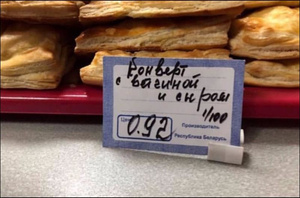 Конверт
с ветчиной
и сыром
1/100
Цена
0.92
Производитель
Республика Беларусь